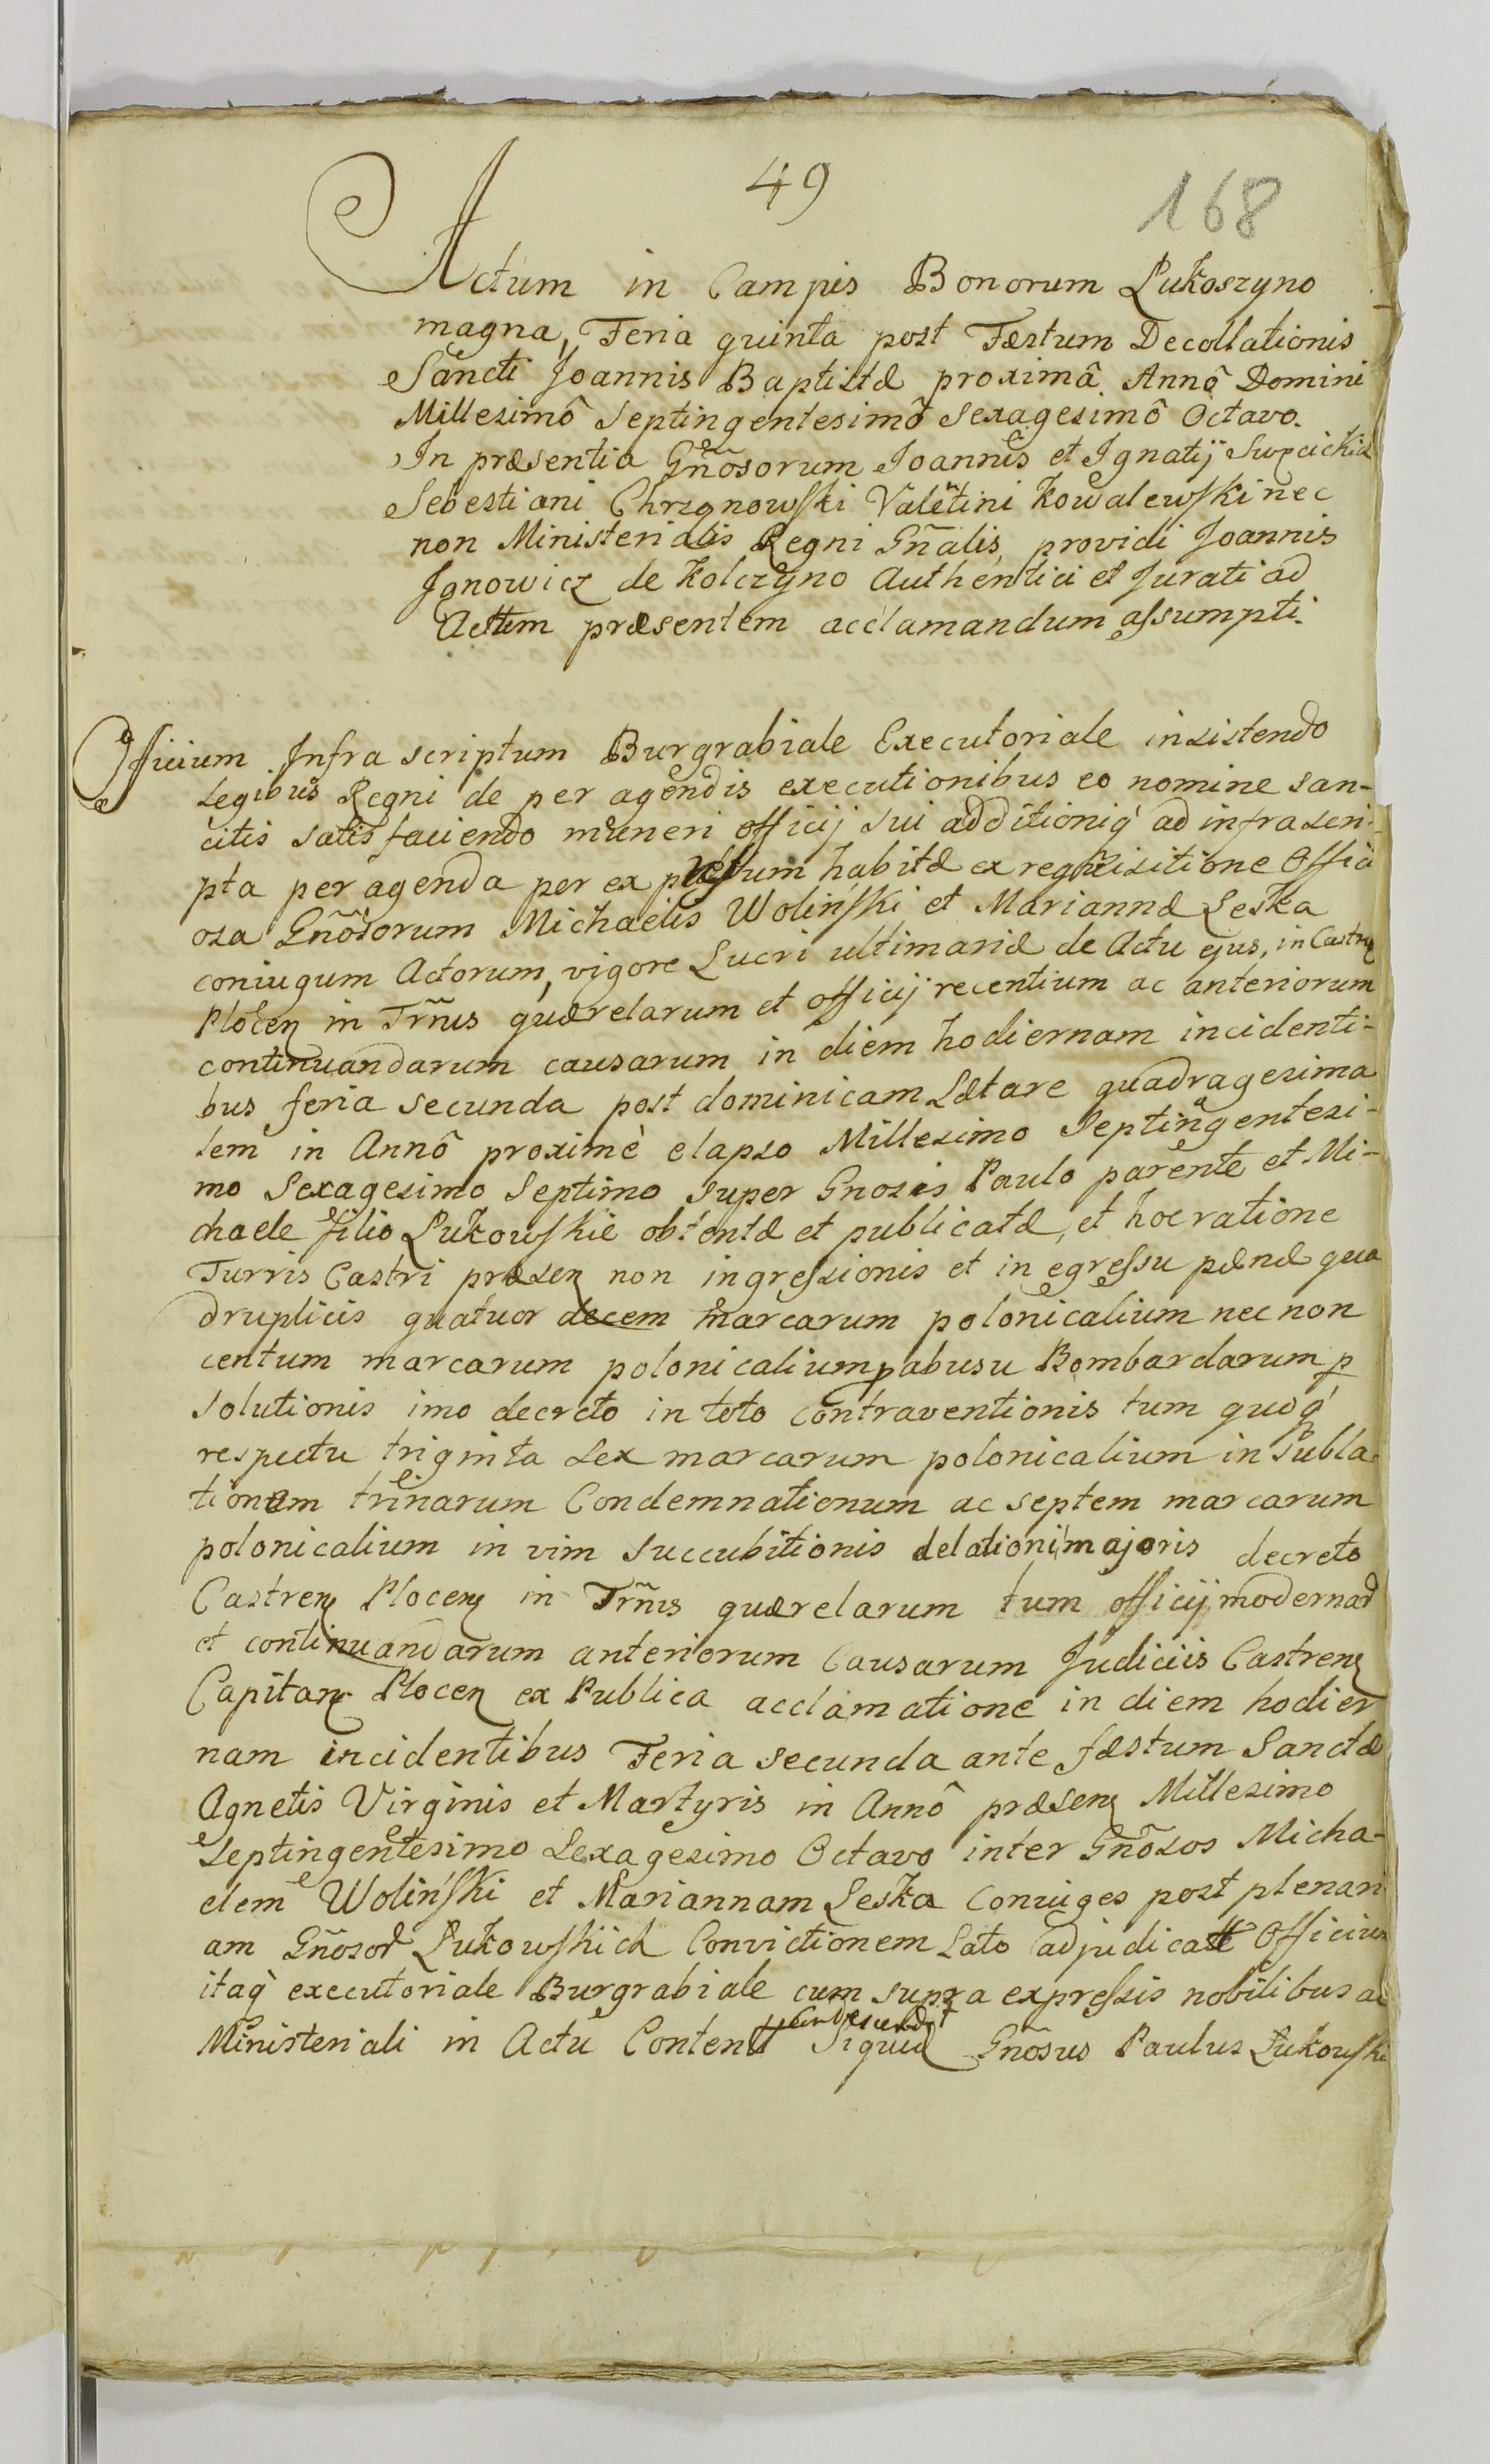 49
168
Actum in Campis Bonorum Łukoszyno
magna, Feria quinta post Fæstum Decollationis
Sancti Joannis Baptistæ proximâ Annô Domini
Millesimô Septingentesimô Sexagesimô Octavo.
In præsentia Gñosorum Joannis et Ignatij
Sebestiani Chrzanowski Valẽtini Kowalewski nec
non Ministerialis Regni Gñalis, providi Joannis
Janowicz de Kolczyno Authentici et Jurati ad
Actum præsentem acclamandum assumpti.
Officium Infra scriptum Burgrabiale Executoriale insistendo
Legibus Regni de per agendis executionibus eo nomine san-
citis satis faciendo muneri officij sui additioniq' ad infra scri-
pta per agenda per ex pressum habitæ ex reqvisitione Offici
osa Gñosorum Michaelis Wolinski et Mariannæ Leska
coniugum Actorum, vigore Lucri ultimariæ de Actu ejus, in Castro
Plocen in Trñis quærelarum et officij recentium ac anteriorum
continuandarum causarum in diem hodiernam incidenti-
bus feria secunda post dominicam Lætare quadragesima
lem in Annô proximè elapso Millesimo Septingentesi-
mo Sexagesimo Septimo super Gnosis Paulo parente et Mi-
chaele filio Łukowskie obtentæ et publicatæ, et hoc ratione
Turris Castri præsen non ingressionis et in egressu pænæ qua
druplicis quatuor decem marcarum polonicalium nec non
centum marcarum polonicalium p abusu Bombardarum p
solutionis imo decreto in toto contraventionis tum quoq'
respectu triginta sex marcarum polonicalium in subla-
tionem trinarum Condemnationum ac septem marcarum
polonicalium in vim succubitionis delationi majoris decreto
Castren Plocen in Trñis quærelarum tum officij modernar
et continuandarum anteriorum Causarum Judiciis Castren
Capitan Plocen ex Publica acclamatione in diem hodier
nam incidentibus Feria secunda ante fæstum Sanctæ
Agnetis Virginis et Martyris in Annô præsen Millesimo
Septingentesimo Sexagesimo Octavo inter Gñosos Micha-
elem Wolinski et Mariannam Leska Coniuges post plenari
am Gñosor Łukowskich Convictionem Lato adjudicatæ Officium
itaq' executoriale Burgrabiale cum supra expressis nobilibus ac
condescendit
Ministeriali in Actu Content Siquid Gñosus Paulus Łukowski